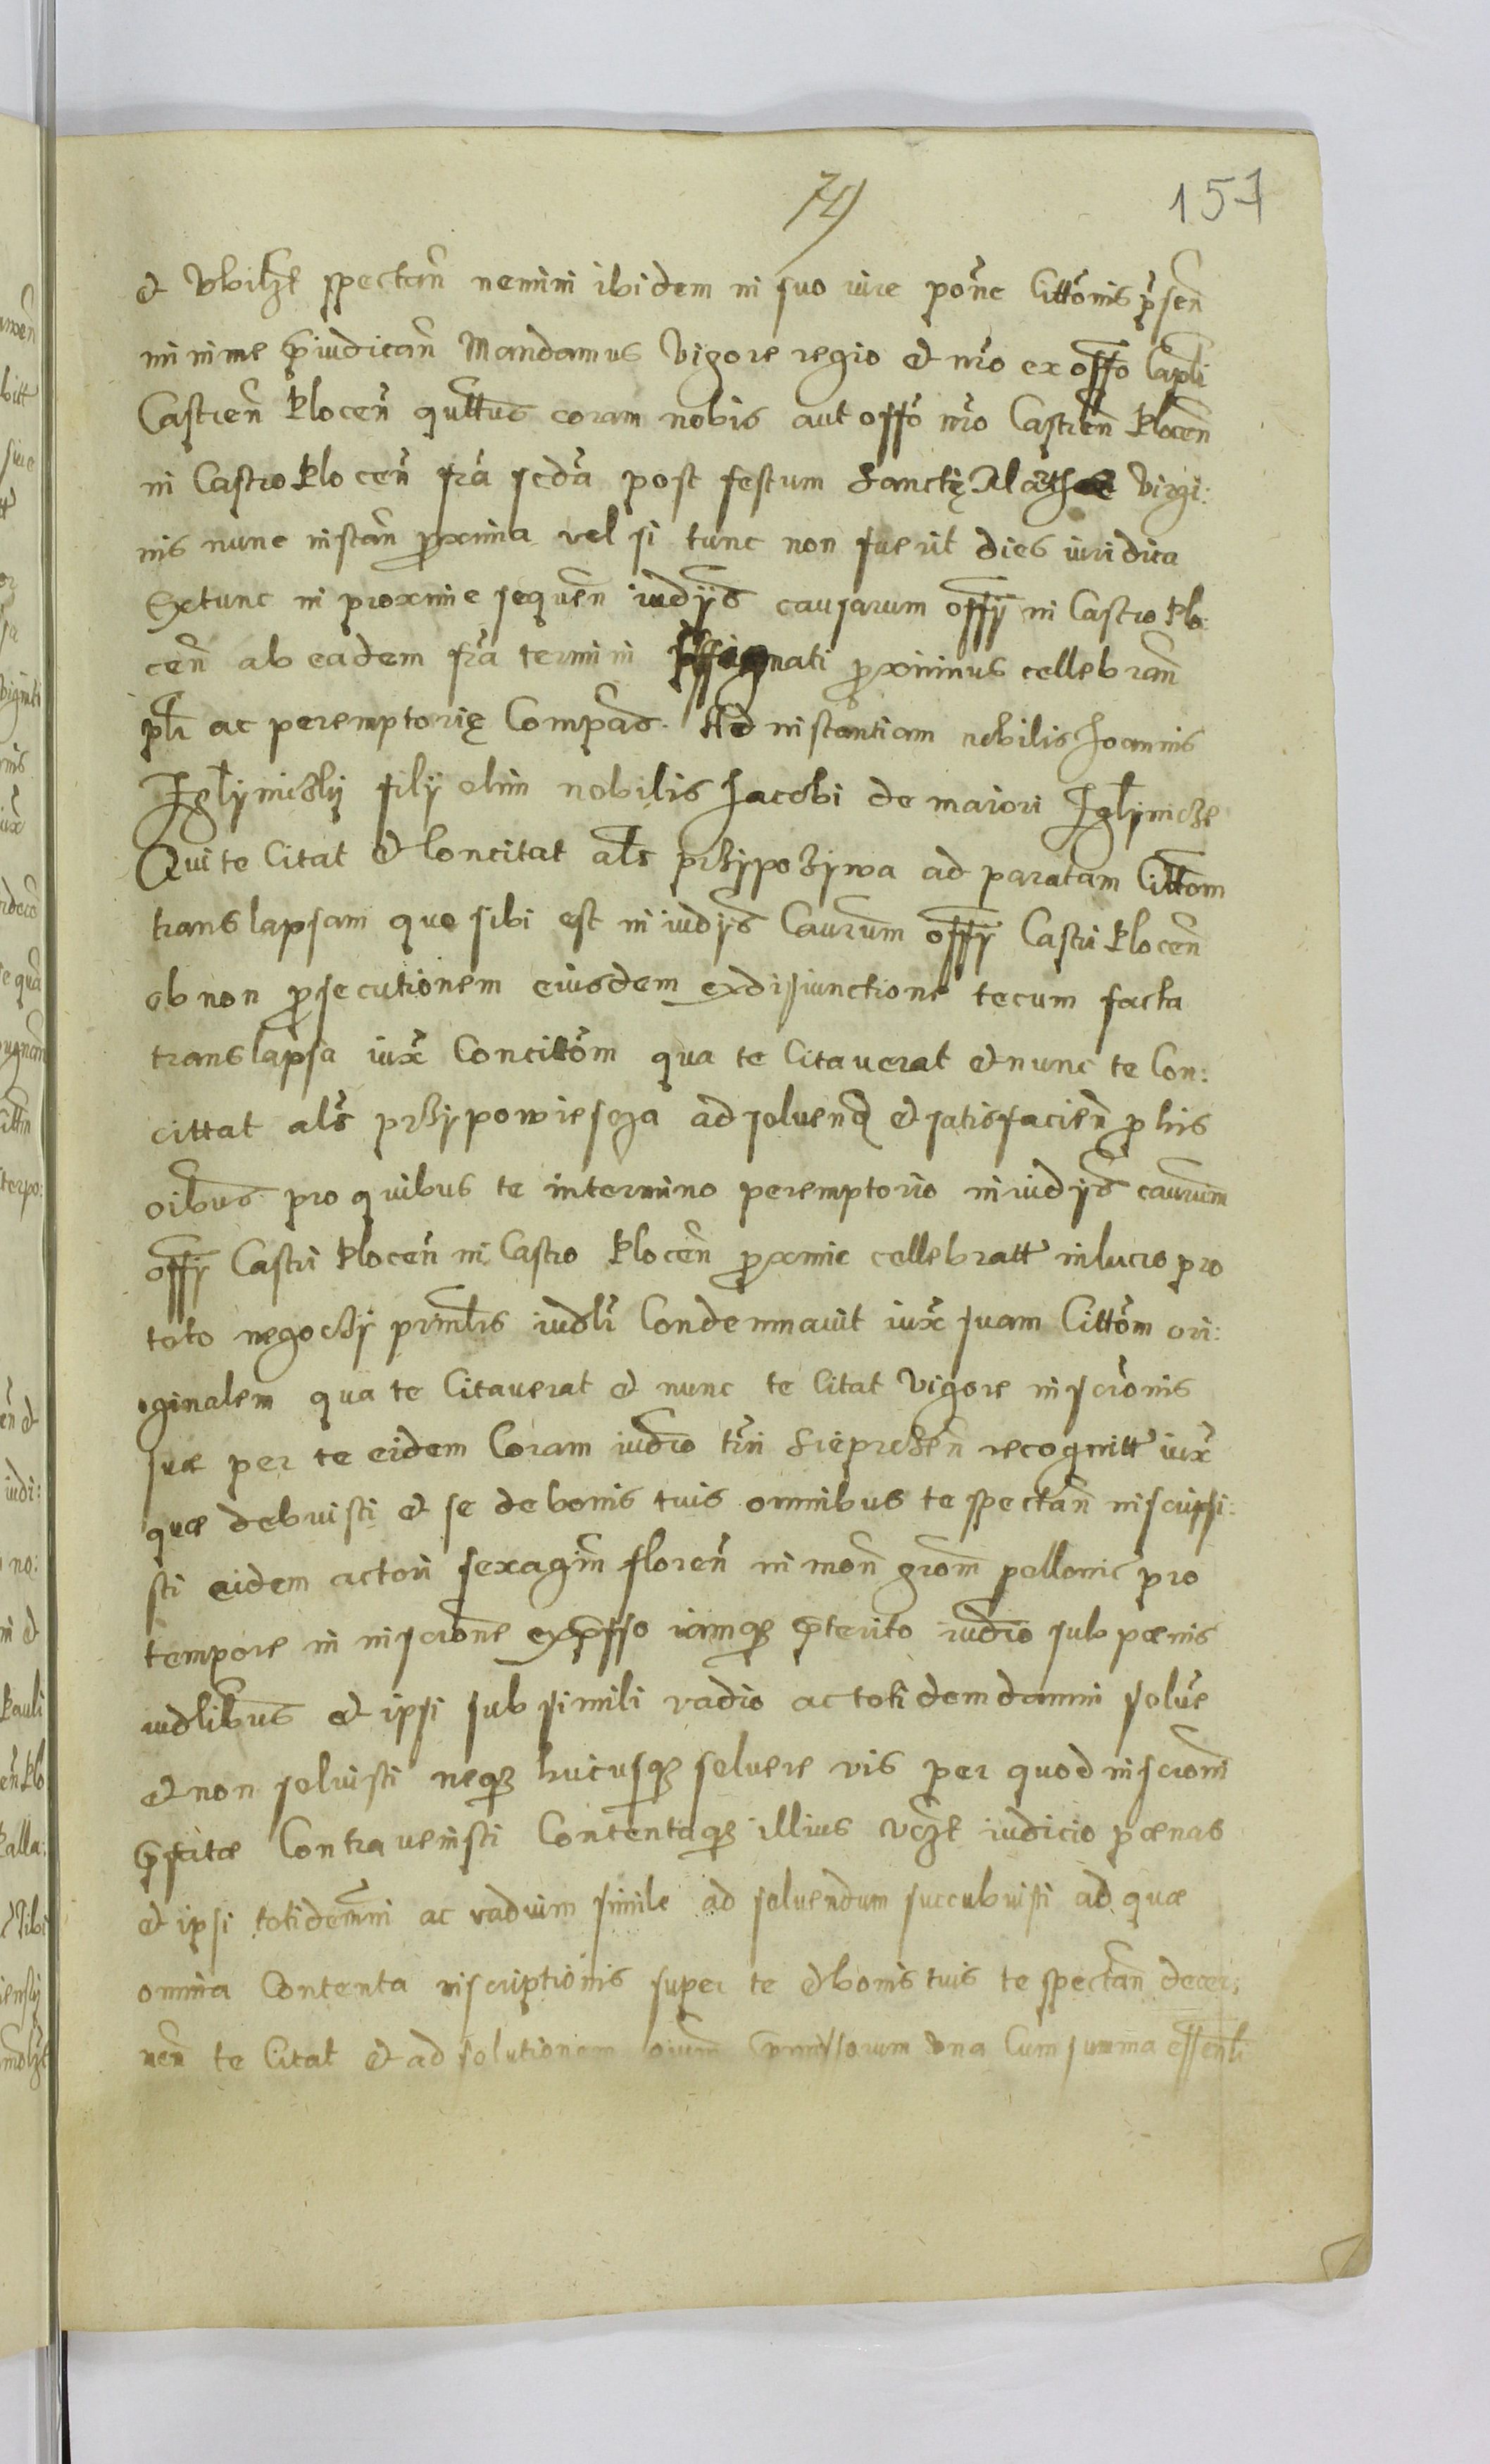 74
157
et vbilzt spectañ nemini ibidem in suo iure ponc Cittonis psen
minime priudicañ Mandamus Vigore regio et nro ex offo Capli
Castreñ Ploceñ quttus coram nobis aut offo nro Castreñ Ploceñ
in Castro Ploceñ fra scda post festum Sanctę Virgi:
nis nunc instañ proxima vel si tunc non fuerit dies iuridica
Extunc in proxime sequeñ iudys causarum offy in Castro Plo:
ceñ ab eadem fra termini assignati proximius cellebrañ
plr ac peremptorię Compas. Ad instantiam nobilis Joannis
Jglyniczky fily olim nobilis Jacobi de maiori Jglynicze
Qui te Citat et Concitat als przypozywa ad paratam Cittom
translapsam que sibi est in iudys Caurum offy Castri Ploceñ
ob non prosecutionem eiusdem ex disiunctione tecum facta
translapsa iux Concitom qua te Citauerat et nunc te Con:
cittat als przypowiescza ad soluend et satisfacień pro his
oibus pro quibus te in termino peremptorio in iudys caurum
offy Castri Ploceñ in Castro Ploceñ proxime cellebratt in lucro pro
toto negoczy prinlis iudlr Condemnauit iux suam Cittom ori:
ginalem qua te Citauerat et nunc te Citat Vigore inscronis
suæ per te eidem Coram iudio trri Sieprczeñ recognitt iux
quæ debuisti et se de bonis tuis omnibus te spectañ inscripsi:
sti eidem actori sexagin floreñ in moñ grom pollonic pro
tempore in inscrone expsso iamqz prterito iudio sub pænis
iudlibus et ipsi sub simili vadio ac totidem damni solue
et non soluisti neqz hucusqz soluere vis per quod inscroni
prscitæ Contrauenisti Contentaqz illius vczt iudicio pænas
et ipsi totidemni ac vadium simile ad soluendum succubuisti ad quæ
omnia Contenta inscriptionis super te et bonis tuis te spectañ decer:
neñ te Citat et ad solutionem oium prmissorum vna Cum summa essenli